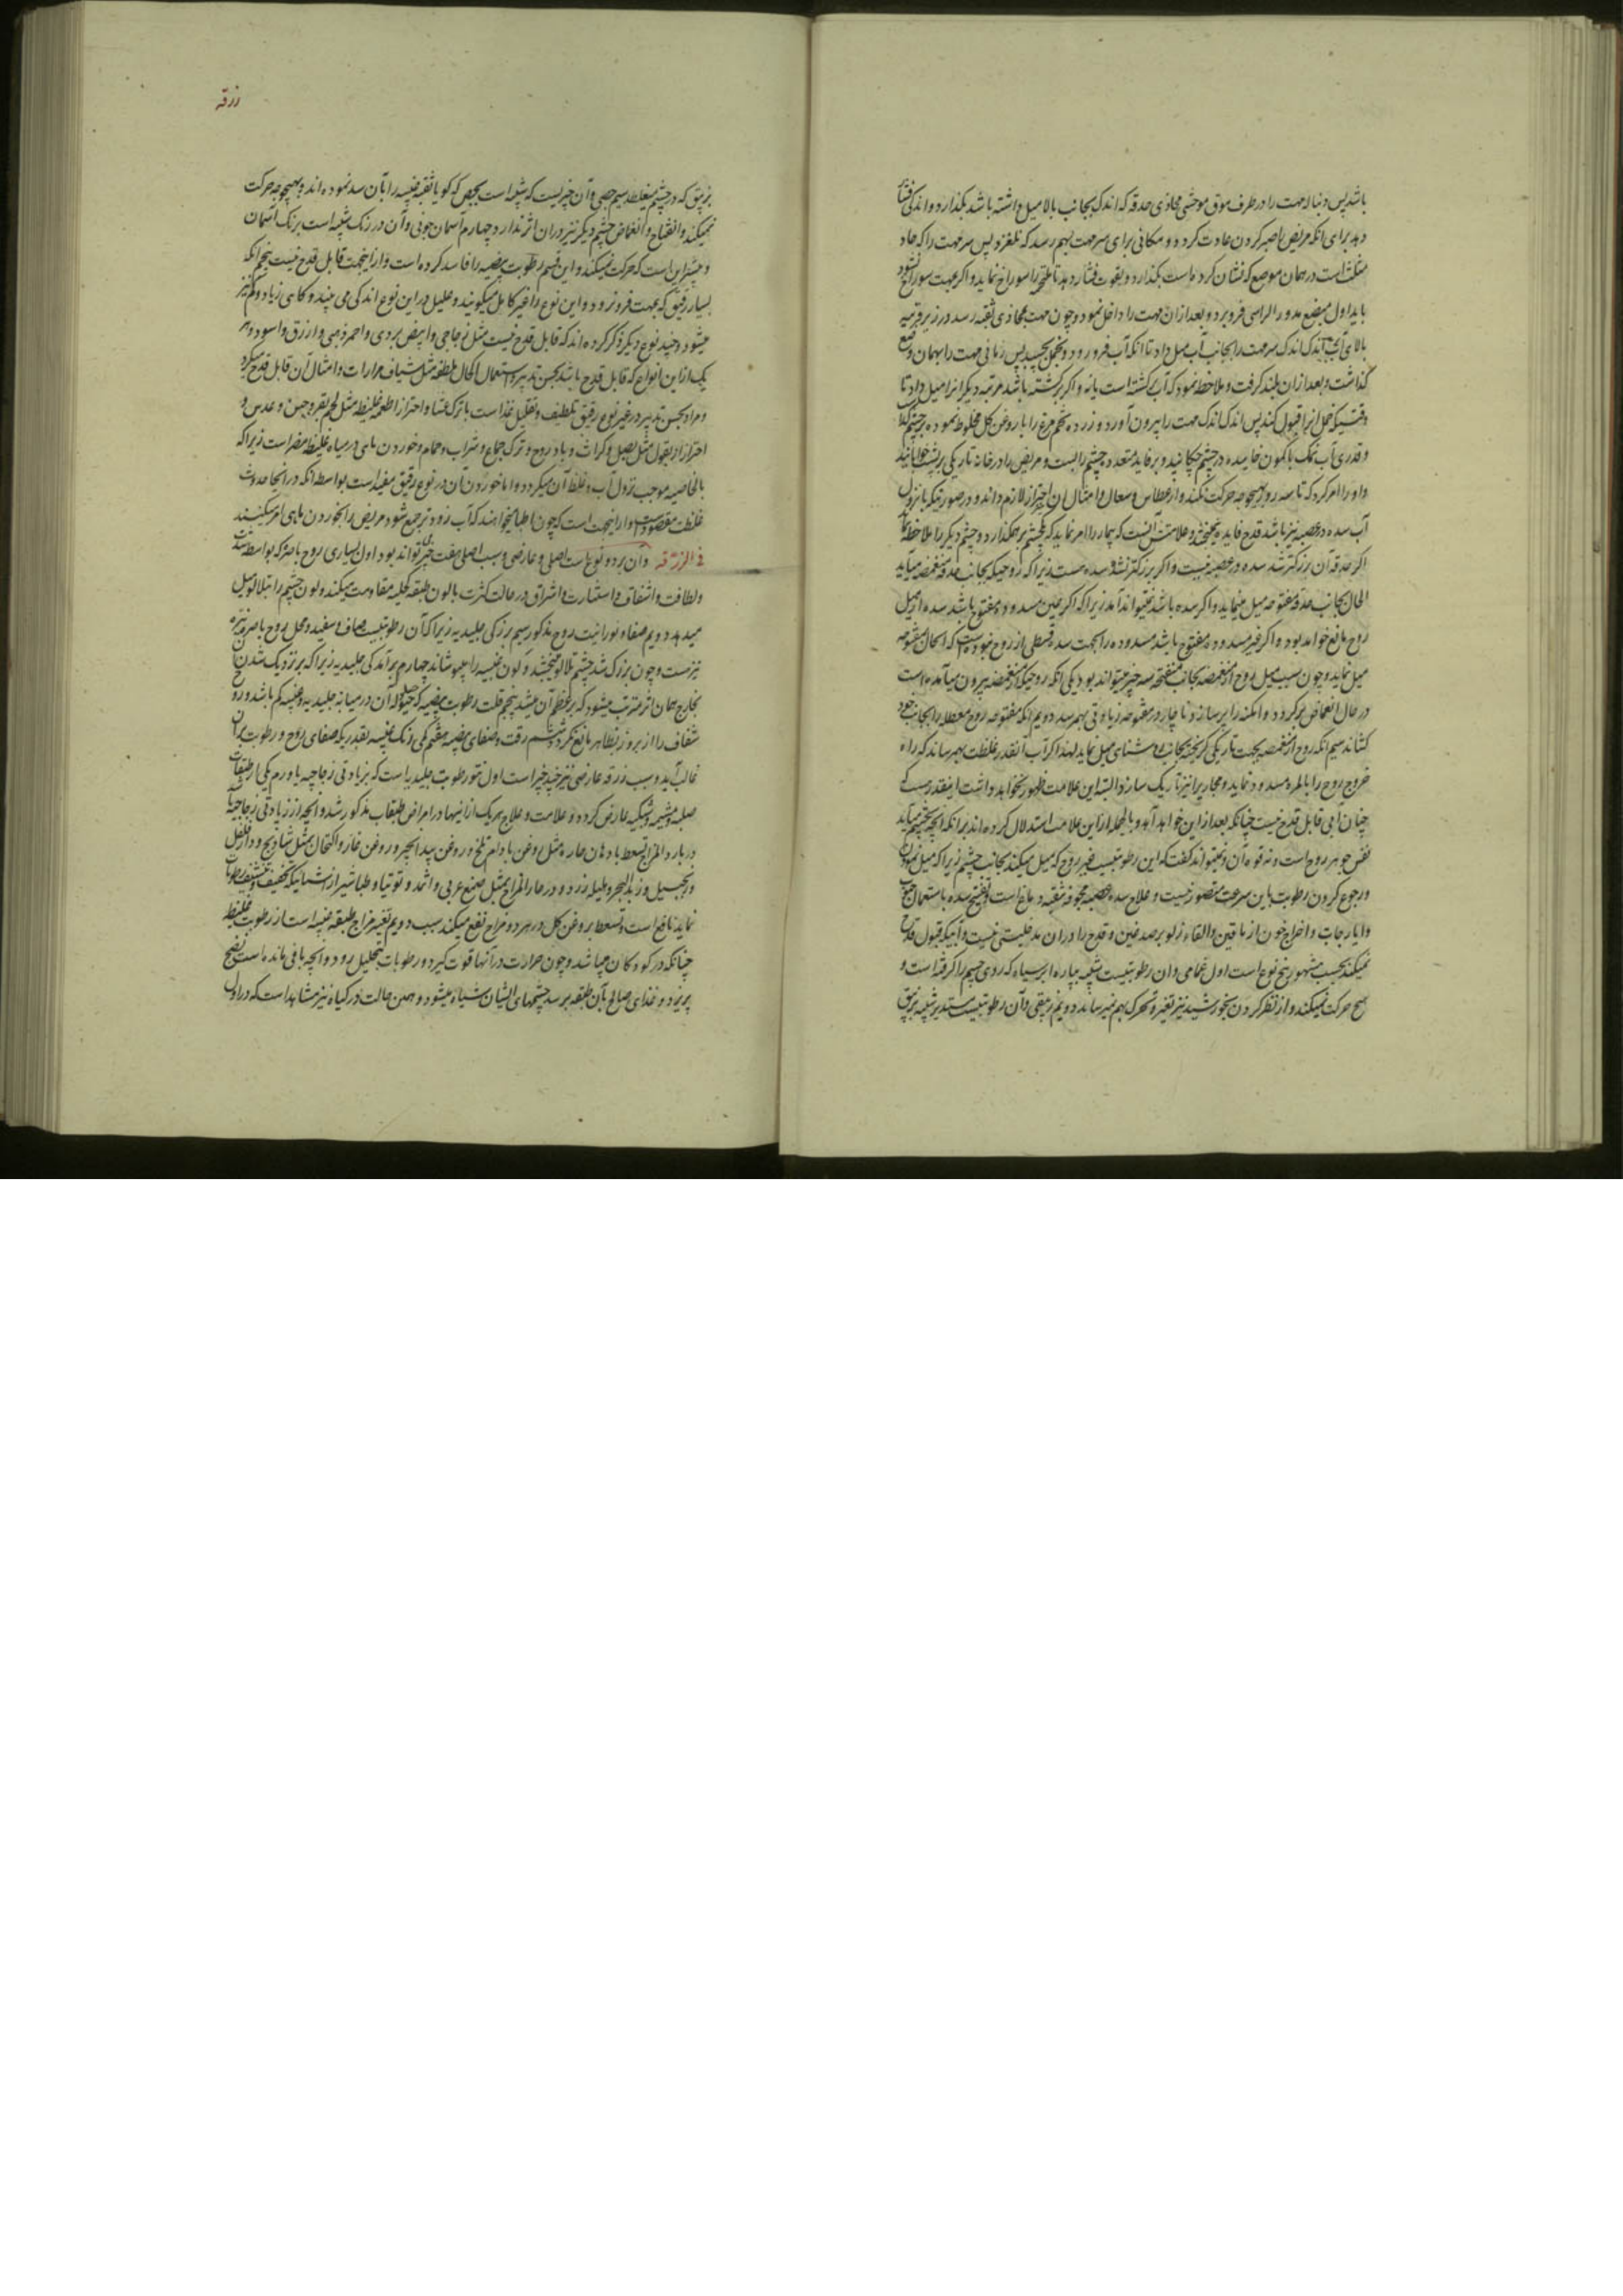 باشد پس دنباله مهت را در طرف موق موحشی محاذی حدقه که اندک بجانب بالا میل داشته باشد بکذارد و اندکی فشار
دهد برای انکه مریض را صبر کردن عادت کردد و مکانی برای سر مهت بهم رسد که نلغزد پس سر مهت را که حاد
مثلث است در همان موضع که نشان کرده است بکذارد و بقوت فشار دهد تا ملتحمه را سوراخ نماید و اکر بمهت سوراخ نشود
باید اول مبضع مدور الراس فرو برد و بعد از ان مهت را داخل نمود و چون مهت بمحاذی ثقبه رسد و در زیر قرنیه
بالای آب اندک اندک سر مهت را بجانب آب میل داد تا انکه آب فرو رود و بخمل بچسبد پس زمانی مهت را بهمان وضع
کذاشت و بعد از ان بلند کرفت و ملاحظه نمود که آب برکشته است یا نه و اکر برکشته باشد مرتبه دیکر انرا میل داد تا
وقتیکه خمل انرا قبول کند پس اندک اندک مهت را بیرون آورد و زرده تخم مرغ را با روغن کل مخلوط نموده بر چشم
و قدری آب نمک با کمون خاییده در چشم چکانید و برفاید متعدد چشم را بست و مریض را در خانه تاریکی بر پشت خوابانید
و او را امر کرد که تا سه روز بهیچوجه حرکت نکند و از عطاس و سعال و امثال ان احتراز لازم داند و در صورتیکه با نزول
آب سده در عصبه نیز باشد قدح فایده نبخشد و علامتش آنست که بیمار را امر نماید که یکچشم بر هم کذارد و چشم دیکر را ملاحظه نماید
اکر حدقه آن بزرکتر شد سده در عصبه نیست و اکر بزرکتر نشد سده هست زیرا که روحیکه بجانب حدقه منغمضه میآید
الحال بجانب حدقه مفتوحه میل مینماید و اکر سده باشد نمیتواند آمد زیرا که اکر همین مسدوده مفتوح باشد سده از میل
روح مانع خواهد بود و اکر غیر مسدوده مفتوح باشد مسدوده را بجهت سده قسطی از روح نبوده است که الحال بمفتوحه
میل نماید و چون سبب میل روح از منغمضه بجانب منفتحه سه چیز میتواند بود یکی انکه روحیکه از منغمضه بیرون میآمده است
در حال انغماض برکردد و امکنه را پر سازد و ناچار در مفتوحه زیادتی بهم رسد دویم انکه مفتوحه روح معطله را بجانب خود
کشاند سیم انکه روح از منغمضه بجهت تاریکی کریخته بجانب روشنای میل نماید لهذا اکر آب آنقدر غلظت بهم رساند که راه
خروج روح را بالمره مسدود نماید و مجاری را نیز تاریک سازد البته این علامت ظهور نخواهد داشت اینقدر هست که
چنان آبی قابل قدح نیست چنانکه بعد از این خواهد آمد و بالجمله از این علامت استدلال کرده اند بر انکه آنچه بچشم میآید
نفس جوهر روح است و نه قوه آن و نمیتواند کفت که این رطوبتیست غیر روح که میل میکند بجانب چشم زیرا که میل نمودن
و رجوع کردن رطوبت باین سرعت متصور نیست و علاج سده عصبه مجوفه تنقیه دماغ است و تفتیح سده باستعمال حبوب
و ایارجات و اخراج خون از ماقین و القاء زلو بر صدغین و قدح را در ان مدخلیتی نیست و آبیکه قبول قدح
نمیکند بحسب مشهور پنج نوع است اول غمامی و ان رطوبتیست شبیه بپاره ابر سیاه که روی چشم را کرفته است و
هیچ حرکت نمیکند و از نظر کردن بخورشید نیز تغیر و تحرک بهم نمیرساند دویم زیبقی و آن رطوبتیست مستدیر شبیه بزیبق
زرقه
بزیبق که در چشم میغلطد سیم جصی و آن چیزیست که شبیه است بجص که کویا ثقبه عنبیه را بآن سد نموده اند و بهیچوجه حرکت
نمیکند و انفتاح و انغماض چشم دیکر نیز در ان اثر ندارد چهارم آسمان جونی و آن در رنک شبیه است برنک آسمان
و بیشتر این است که حرکت نمیکند و این قسم رطوبت بیضیه را فاسد کرده است و از اینجهت قابل قدح نیست پنجم انکه
بسیار رقیق که بمهت فرو نرود و این نوع را غیر کامل میکویند و علیل در این نوع اندکی می بیند و کاهی زیاد و کم نیز
میشود و چند نوع دیکر ذکر کرده اند که قابل قدح نیست مثل زجاجی و ابیض بردی و احمر ذهبی و ازرق و اسود و هر
یک از این انواع که قابل قدح باشد بحسن تدبیر و استعمال اکحال ملطفه مثل شیاف مرارات و امثال آن قابل قدح میکردد
و مراد بحسن تدبیر در غیر نوع رقیق تلطیف و تقلیل غذا است با ترک عشا و احتراز از اطعمه غلیظه مثل لحم بقر و جبن و عدس و
احتراز از بقول مثل بصل و کراث و بادروج و ترک جماع و شراب و حمام و خوردن ماهی در میاه غلیظه مضر است زیرا که
بالخاصیه موجب نزول آب و غلظ آن میکردد و اما خوردن آن در نوع رقیق مفید است بواسطه انکه در انجا حدوث
غلظت مقصود است و از اینجهت است که چون اطبا میخواهند که آب زودتر جمع شود مریض را بخوردن ماهی امر میکنند
فی الزرقه وآن بر دو نوع است اصلی و عارضی و سبب اصلی هفت چیز تواند بود اول بسیاری روح باصره که بواسطه
و لطافت و اشفاف و استنارت و اشراق در حالت کثرت با لون طبقه کحلیه مقاومت میکند و لون چشم را تبلالو میل
میدهد دویم صفا و نورانیت روح مذکور سیم بزرکی جلیدیه زیرا که آن رطوبتیست صاف و سفید و محل روح باصره
نیز هست و چون بزرک شد چشم تلالو میبخشد و لون عنبیه را میپوشاند چهارم برآمدکی جلیدیه زیرا که بر نزدیک شدن آن
بخارج همان اثر مترتب میشود که بر عظم آن میشد پنجم قلت رطوبت بیضیه که حیلوله آن در میانه جلیدیه و عنبیه کم باشد و روح
شفاف را از بروز بظاهر مانع نکردد ششم رقت و صفای بیضیه هفتم کمی رنک عنبیه بقدریکه صفای روح و رطوبت بر آن
غالب آید و سبب زرقه عارضی نیز چند چیز است اول نتو رطوبت جلیدیه است که بزیادتی زجاجیه یا ورم یکی از طبقات
صلبه و مشیمه و شبکیه عارض کردد و علامت و علاج هر یک از اینها در امراض طبقات مذکور شد و انچه از زیادتی زجاجیه
در بارد المزاج تسعط بادهان حاره مثل روغن بادام تلخ و روغن بیدانجیر و روغن غار و اکتحال بمثل شادنج و دارفلفل
و زنجبیل و زبد البحر و هلیله زرد و در حار المزاج بمثل صمغ عربی و اثمد و توتیا و طباشیر از اشیائیکه تجفیف و تنشیف رطوبات
نماید نافع است و تسعط بروغن کل در هر دو مزاج نفع میکند سبب دویم تغیر مزاج طبقه عنبیه است از رطوبت غلیظه
چنانکه در کودکان میباشد و چون حرارت در آنها قوت کیرد و رطوبات بتحلیل رود و انچه باقی مانده است نضج
پذیرد و غذای صالح بآن طبقه برسد چشمهای ایشان سیاه میشود و همین حالت در کیاه نیز مشاهد است که در اول